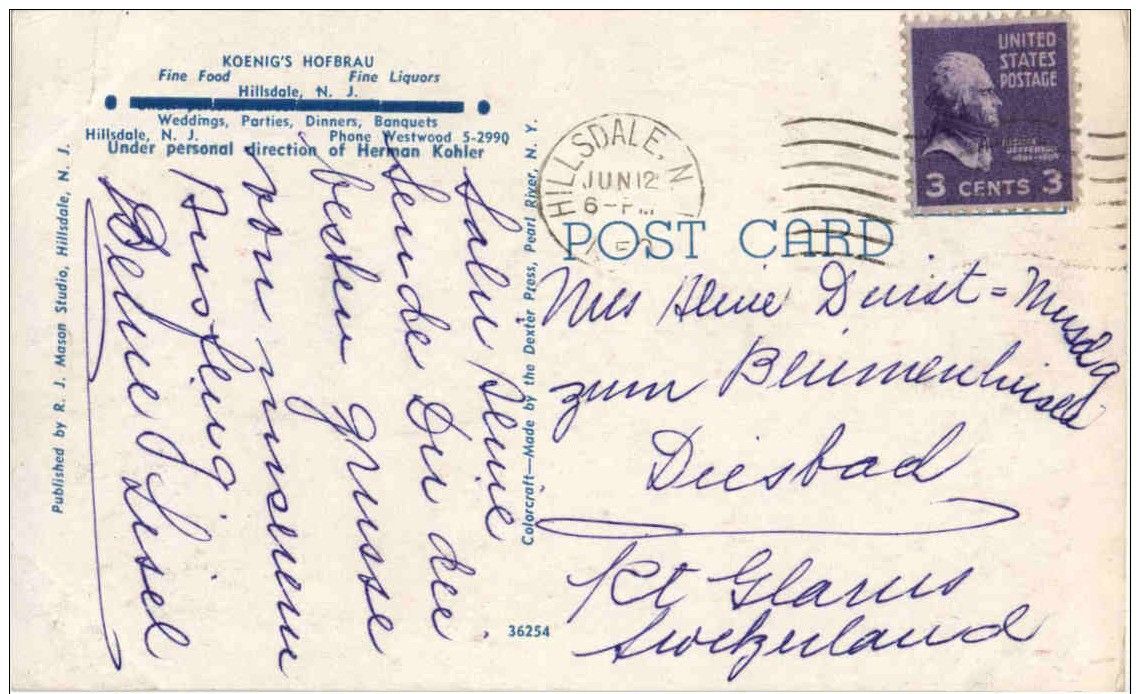 KOENIG'S HOFBRAU
Fine Food Fine Liquors
Hillsdale, N. J.
Weddings, Parties, Dinners, Banquets
Hillsdale, N. J. Phone Westwood 5-2990
Under personal direction of Herman Kohler
Published by R. J. Mason Studio, Hillsdale, N. J.
Salu Aline
Sende Dir die
besten grüsse
von unserem
Ausflug
Deine Lisel
Colorcraft—Made by the Dexter Press, Pearl River, N. Y.
36254
HILLSDALE, N.
JUN 12
6-PM
UNITED
STATES
POSTAGE
3 CENTS 3
POST CARD
Aline Durst=
zum
Diesbad
Kt Glarus
Switzerland